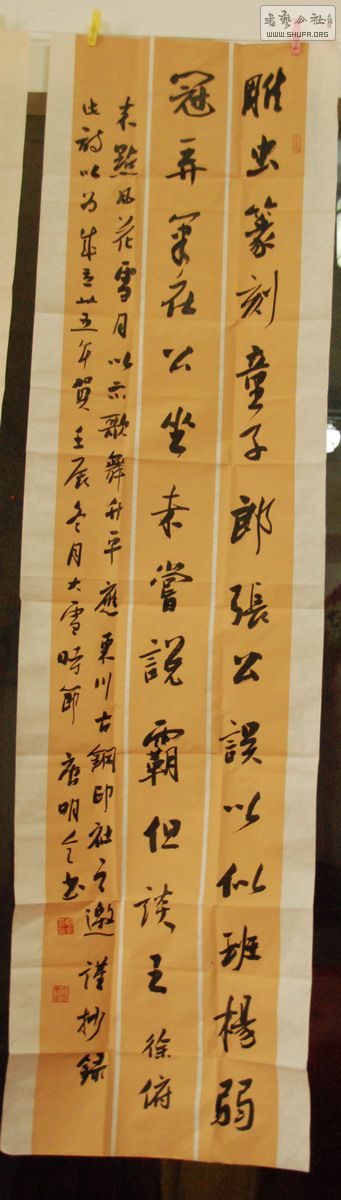 书艺公社
WWW.SHUFA.ORG
雕虫篆刻童子郎張公誤以似班楊弱
冠弄笔在公坐未嘗說霸但談王 徐俯
来點风花雪月以示歌舞升平應東川古銅印社之邀謹抄録
此詩以为成立廿五年賀壬辰冬月大雪時節 唐明书